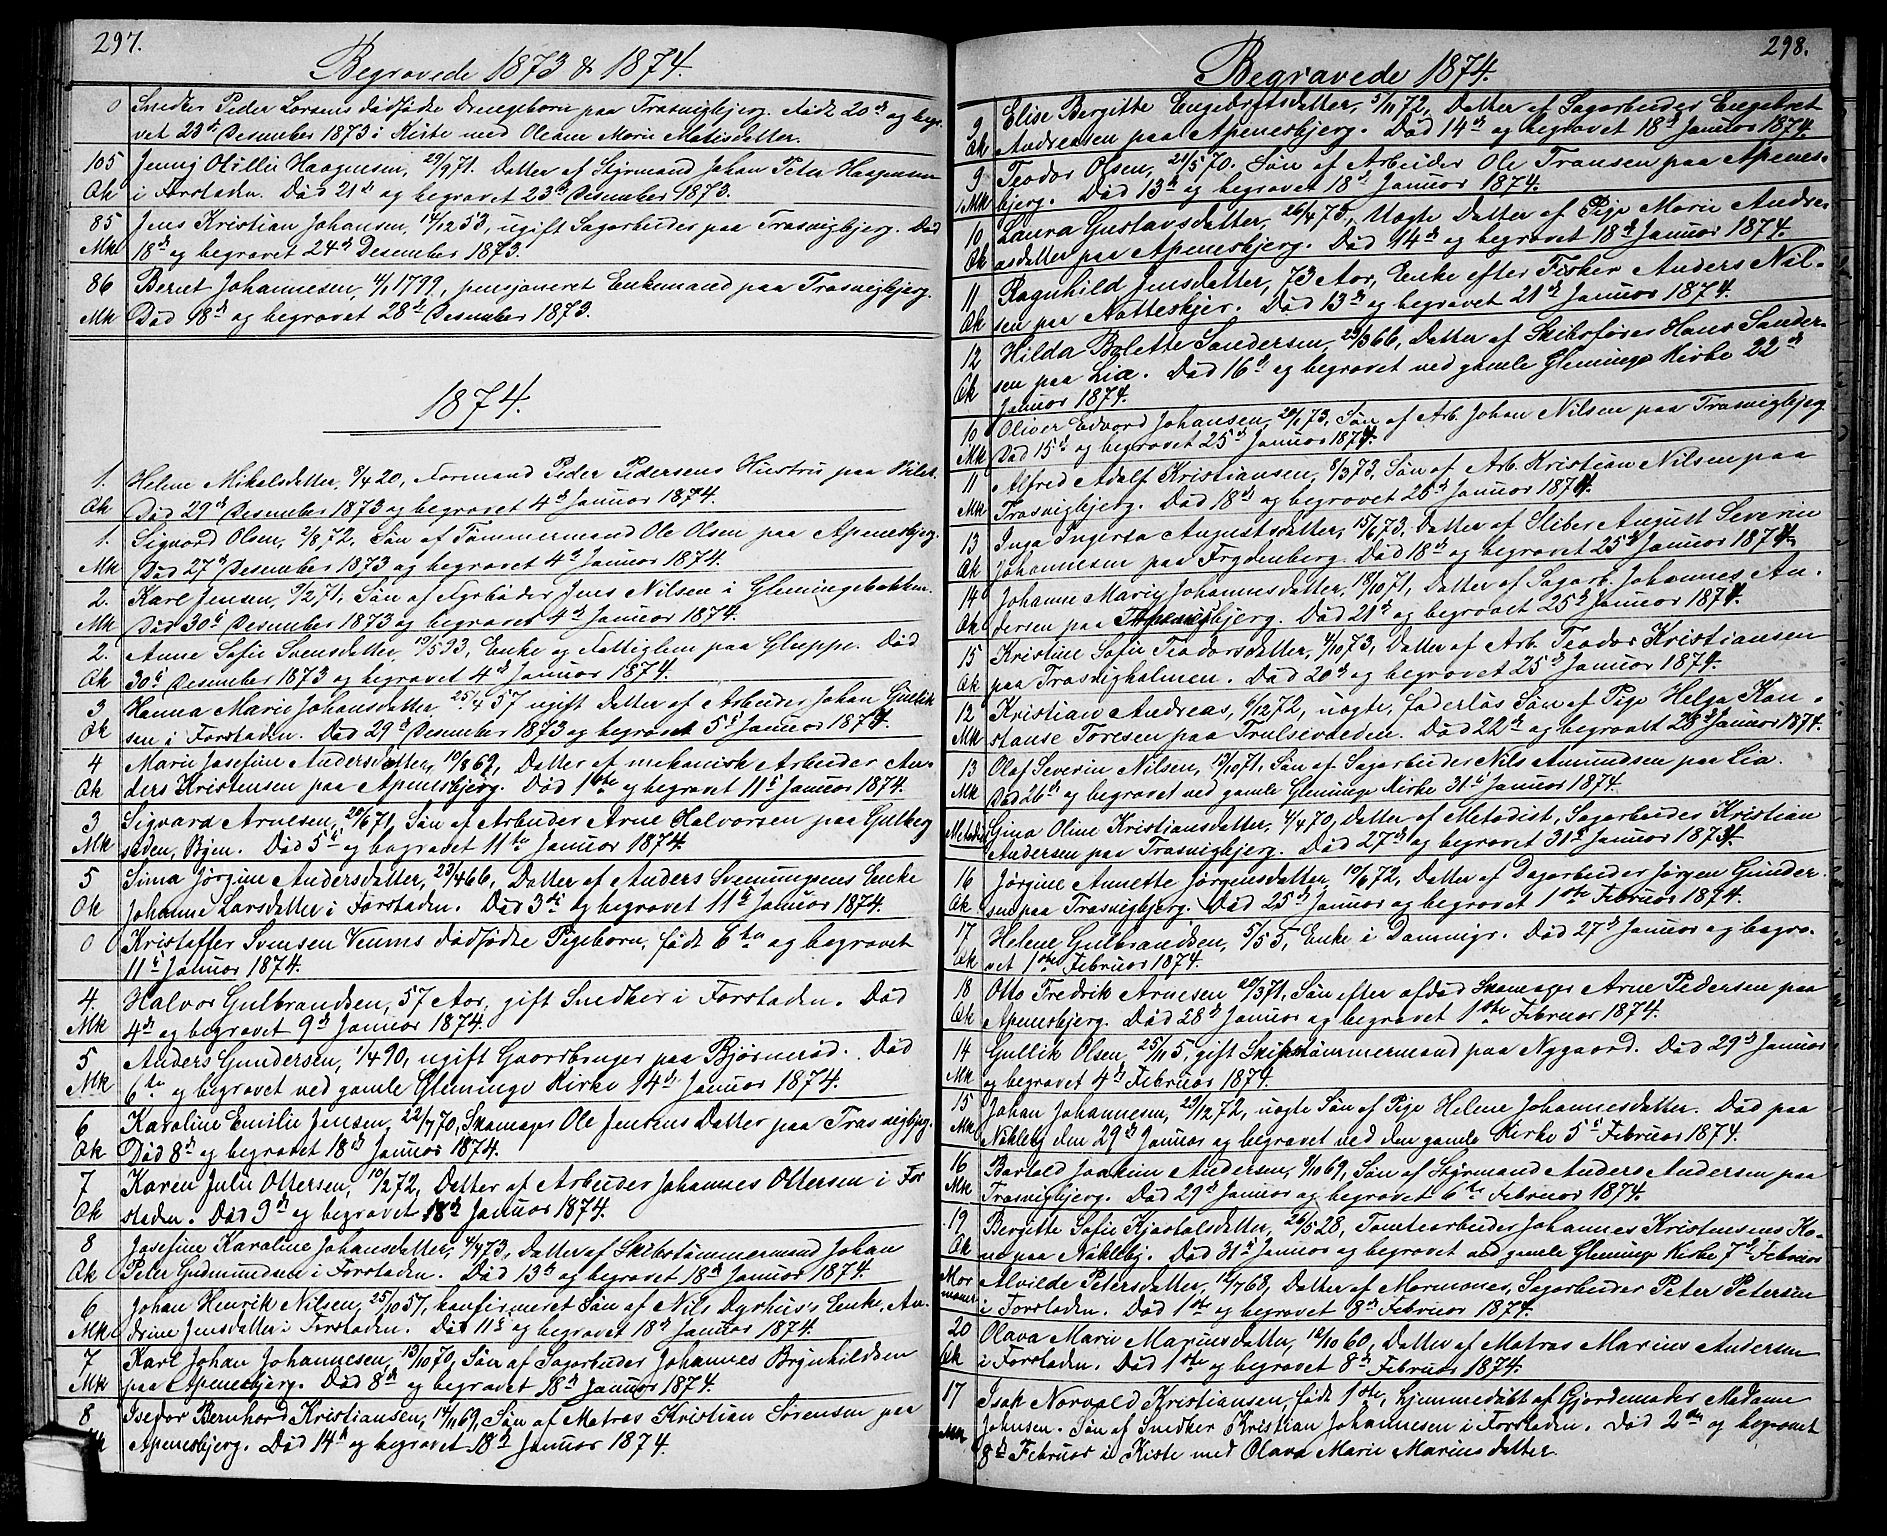 297.
Begravede 1873 & 1874.
0 Snedker Peder Larsens dødfødte Drengebarn paa Trosvigbjerg. Født 20de og begra-
vet 23de Desember 1873 i Kiste med Oleam Marie Matisdatter.
105 Jenny Otillie Haagensen, 29/9 71. Datter af Styrmand Johan Peter Haagensen
Qk i Forstaden. Død 21de og begravet 23de Desember 1873.
85 Jens Kristian Johansen, 14/12 53, ugift Sagarbeider paa Trosvigbjerg. Død
Mk 18de og begravet 24de Desember 1873.
86 Bernt Johannesen, 4/1 1799, pensjoneret Enkemand paa Trosvigbjerg.
Mk Død 18de og begravet 28de Desember 1873.
1874.
1. Helene Mikalsdatter, 8/4 20, Formand Peder Pedersens Hustru paa
Qk Død 29de Desember 1873 og begravet 4de Januar 1874.
1. Sigvard Olsen, 2/8 72, Søn af Tømmermand Ole Olsen paa Apenesbjerg.
Mk Død 27de Desember 1873 og begravet 4de Januar 1874.
2. Karl Jensen, 9/2 71, Søn af Fyrbøder Jens Nilsen i Glemingebakken.
Mk Død 30te Desember 1873 og begravet 4de Januar 1874.
2. Anne Sofie Svensdatter, 19/5 93, Enke og Fattiglem paa Gluppe. Død
Qk 30te Desember 1873 og begravet 4de Januar 1874.
3 Hanna Marie Johansdatter 25/4 57 ugift Datter af Arbeider Johan Gullik
Qk sen i Forstaden. Død 29de Desember 1873 og begravet 5te Januar 1874.
4 Marie Josefine Andersdatter, 19/8 69, Datter af mekanisk Arbeider An-
Qk ders Kristensen paa Apenesbjerg. Død 1ste og begravet 11te Januar 1874.
3 Sigvard Arnesen, 20/6 71, Søn af Arbeider Arne Halvorsen paa Gulberg
Mk søden, Byen. Død 5te og begravet 11te Januar 1874.
5 Sina Jørgine Andersdatter, 23/4 66, Datter af Anders Svenningsens Enke
Qk Johanna Larsdatter i Forstaden. Død 3de og begravet 11te Januar 1874.
0 0 Kristoffer Svensen Veums dødfødte Pigebarn, født 6te og begravet
11te Januar 1874.
4. Halvor Gulbrandsen, 57 Aar, gift Snedker i Forstaden. Død
Mk 4de og begravet 9de Januar 1874.
5 Anders Gundersen, 1/4 90, ugift Gaardbruger paa Bjørnerød. Død
Mk 6te og begravet ved gamle Gleminge Kirke 14de Januar 1874.
6 Karoline Emilie Jensen, 22/7 70, Skomager Ole Jensens Datter paa Trosvigbjg.
Qk Død 8de og begravet 18de Januar 1874.
7 Karen Julie Ottersen, 10/2 72, Datter af Arbeider Johannes Ottersen i For
Qk staden. Død 9de og begravet 18de Januar 1874.
8 Josefine Karoline Johansdatter, 4/4 73, Datter af Skibstømmermand Johan
Qk Peter Gudmundsen i Forstaden. Død 13de og begravet 18de Januar 1874.
6 Johan Henrik Nilsen, 25/10 57, konfirmeret Søn af Nils Dyrhus's Enke, An-
Mk drine Jensdatter i Forstaden. Død 11te og begravet 18de Januar 1874.
7 Karl Johan Johannesen, 13/10 70, Søn af Sagarbeider Johannes Brynhildsen
Mk paa Apenesbjerg. Død 8de og begravet 18de Januar 1874.
8 Isedor Bernhard Kristiansen, 14/11 69, Søn af Matros Kristian Sørensen paa
Mk Apenesbjerg. Død 14de og begravet 18de Januar 1874.
298.
Begravede 1874.
9 Elise Bergitte Engebretsdatter, 5/11 72, Datter af Sagarbeider Engebret
Qk Andreasen paa Apenesbjerg. Død 14de og begravet 18de Januar 1874.
9 Teodor Olsen, 21/5 70. Søn af Arbeider Ole Fransen paa Apenes-
Mk bjerg. Død 13de og begravet 18de Januar 1874.
10 Laura Gustavsdatter, 26/4 73, Uægte Datter af Pige Marie Andre-
Qk asdatter paa Apenesbjerg. Død 14de og begravet 18de Januar 1874.
11 Ragnhild Jensdatter, 73 Aar, Enke efter Fisker Anders Nil-
Qk sen paa Natteskjer. Død 13de og begravet 21de Januar 1874.
12 Hilda Bolette Sandersen, 23/3 66, Datter af Skibsfører Hans Sander-
Qk sen paa Lia. Død 16de og begravet ved gamle Gleminge Kirke 22de
Januar 1874.
10 Oliver Edvard Johansen, 20/1 73, Søn af Arb. Johan Nilsen paa Trosvigbjerg
Mk Død 15de og begravet 25de Januar 1874.
11 Alfred Adolf Kristiansen, 8/3 73, Søn af Arb. Kristian Nilsen paa
Mk Trosvigbjerg. Død 18de og begravet 25de Januar 1874.
13 Inga Ingeria Augustsdatter, 15/6 73, Datter af Sliber August Severin
Qk Johannesen paa Frydenberg. Død 18de og begravet 25de Januar 1874.
14 Johanne Marie Johannesdatter, 18/10 71, Datter af Sagarb. Johannes An-
Qk dersen paa Apenesbjerg. Død 21de og begravet 25de Januar 1874.
15 Kristine Sofie Teodorsdatter, 4/10 73, Datter af Arb. Teodor Kristiansen
Qk paa Trosvigholmen. Død 20de og begravet 25de Januar 1874.
12 Kristian Andreas, 6/12 72, uægte, faderløs Søn af Pige Helga Kon-
Mk stanse Toresen paa Trulsivaeden. Død 22de og begravet 28de Januar 1874.
13 Olaf Severin Nilsen, 19/10 71, Søn af Sagarbeider Nils Amundsen paa Lia.
Mk Død 26de og begravet ved gamle Gleminge Kirke 31te Januar 1874.
Metodist Gina Oline Kristiansdatter, 4/4 70, Datter af Metodist, Sagarbeider Kristian
Andersen paa Trosvigbjerg. Død 27de og begravet 31te Januar 1874.
16 Jørgine Annette Jørgensdatter, 10/9 72, Datter af Dagarbeider Jørgen Gunder-
Qk sen paa Trosvigbjerg. Død 25de Januar og begravet 1ste Februar 1874.
17 Helene Gulbrandsen, 5/5 5, Enke i Damvigr. Død 27de Januar og begra-
Qk vet 1ste Februar 1874.
18 Otto Fredrik Arnesen 29/3 71, Søn efter afdød Skomager Arne Pedersen paa
Qk Apenesbjerg. Død 28de Januar og begravet 1ste Februar 1874.
14 Gullik Olsen, 25/11 5, gift Skibstømmermand paa Nygaard. Død 29de Januar
Mk og begravet 4de Februar 1874.
15 Johan Johannesen, 29/12 72, uægte Søn af Pige Helene Johannesdatter. Død paa
Mk Nakleby den 29de Januar og begravet ved den gamle Kirke 5te Februar 1874.
16 Bartold Joakim Andersen, 9/10 69, Søn af Styrmand Anders Andersen paa
Mk Trosvigbjerg. Død 29de Januar og begravet 6te Februar 1874.
19 Bergitte Sofie Kjostolsdatter, 26/5 28, Tomtearbeider Johannes Kristensens Ko-
Qk ne paa Nakleby. Død 31te Januar og begravet ved gamle Gleminge Kirke 7de Februar
Mor Alvilde Petersdatter, 12/7 68, Datter af Mormoner, Sagarbeider Peter Petersen
moner i Forstaden. Død 1ste og begravet 8de Februar 1874.
20 Olava Marie Mariusdatter, 12/10 60, Datter af Matros Marius Andersen
Qk i Forstaden. Død 1ste og begravet 8de Februar 1874.
17 Isak Norvald Kristiansen, født 1ste, hjemmedøbt af Gjordemoder Madame
Mk Johnsen. Søn af Snedker Kristian Johannesen i Forstaden. Død 2den og begravet
8de Februar i Kiste med Olava Marie Mariusdatter